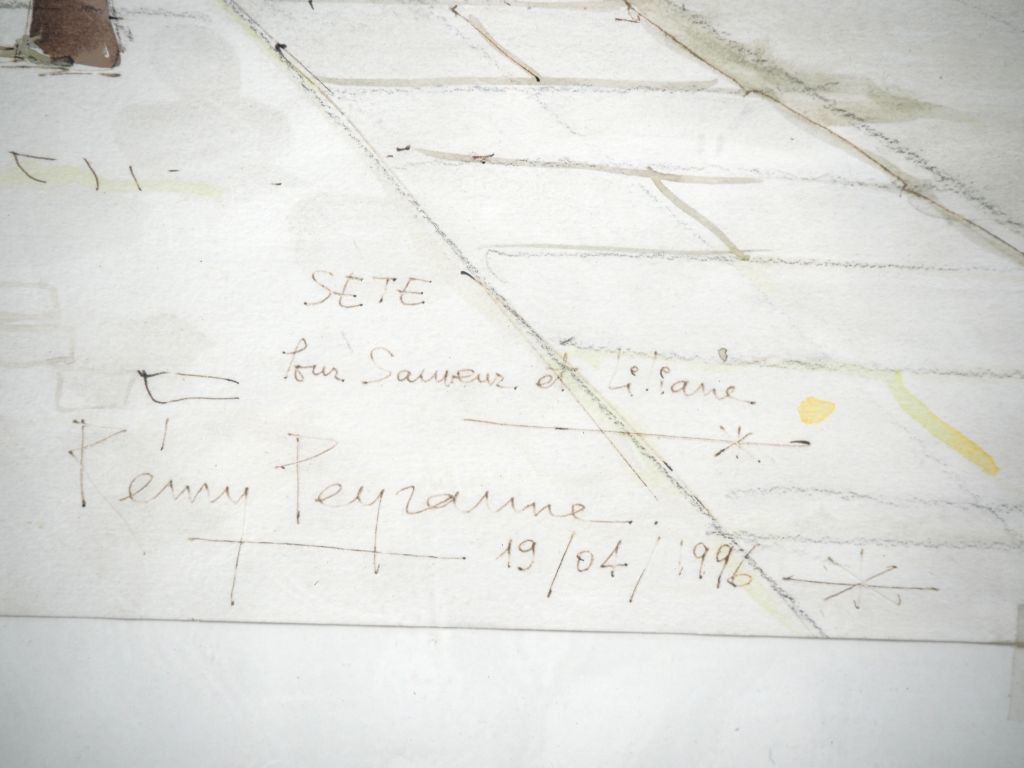 SETE
Pour Sauveur et Liliane
Rémy Peyranne
19/04/1996